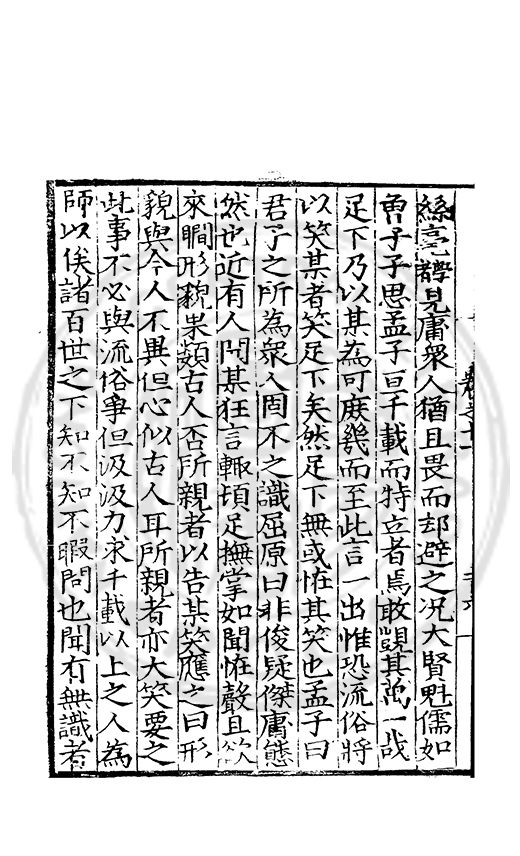 絲毫髣見庸衆人猶且畏而却避之况大賢魁儒如
曾子子思孟子亘千載而特立者焉敢覬其萬一哉
足下乃以某為可庶幾而至此言一出惟恐流俗將
以笑某者笑足下矣然足下無或恠其笑也孟子曰
君子之所為衆人固不之識屈原曰非俊疑傑庸態
然也近有人聞某狂言輙頓足撫掌如聞恠聲且欲
來瞷形貌果類古人否所親者以告某笑應之曰形
貌與今人不異但心似古人耳所親者亦大笑要之
此事不必與流俗爭但汲汲力求千載以上之人為
師以俟諸百世之下知不知不暇問也聞有無識者